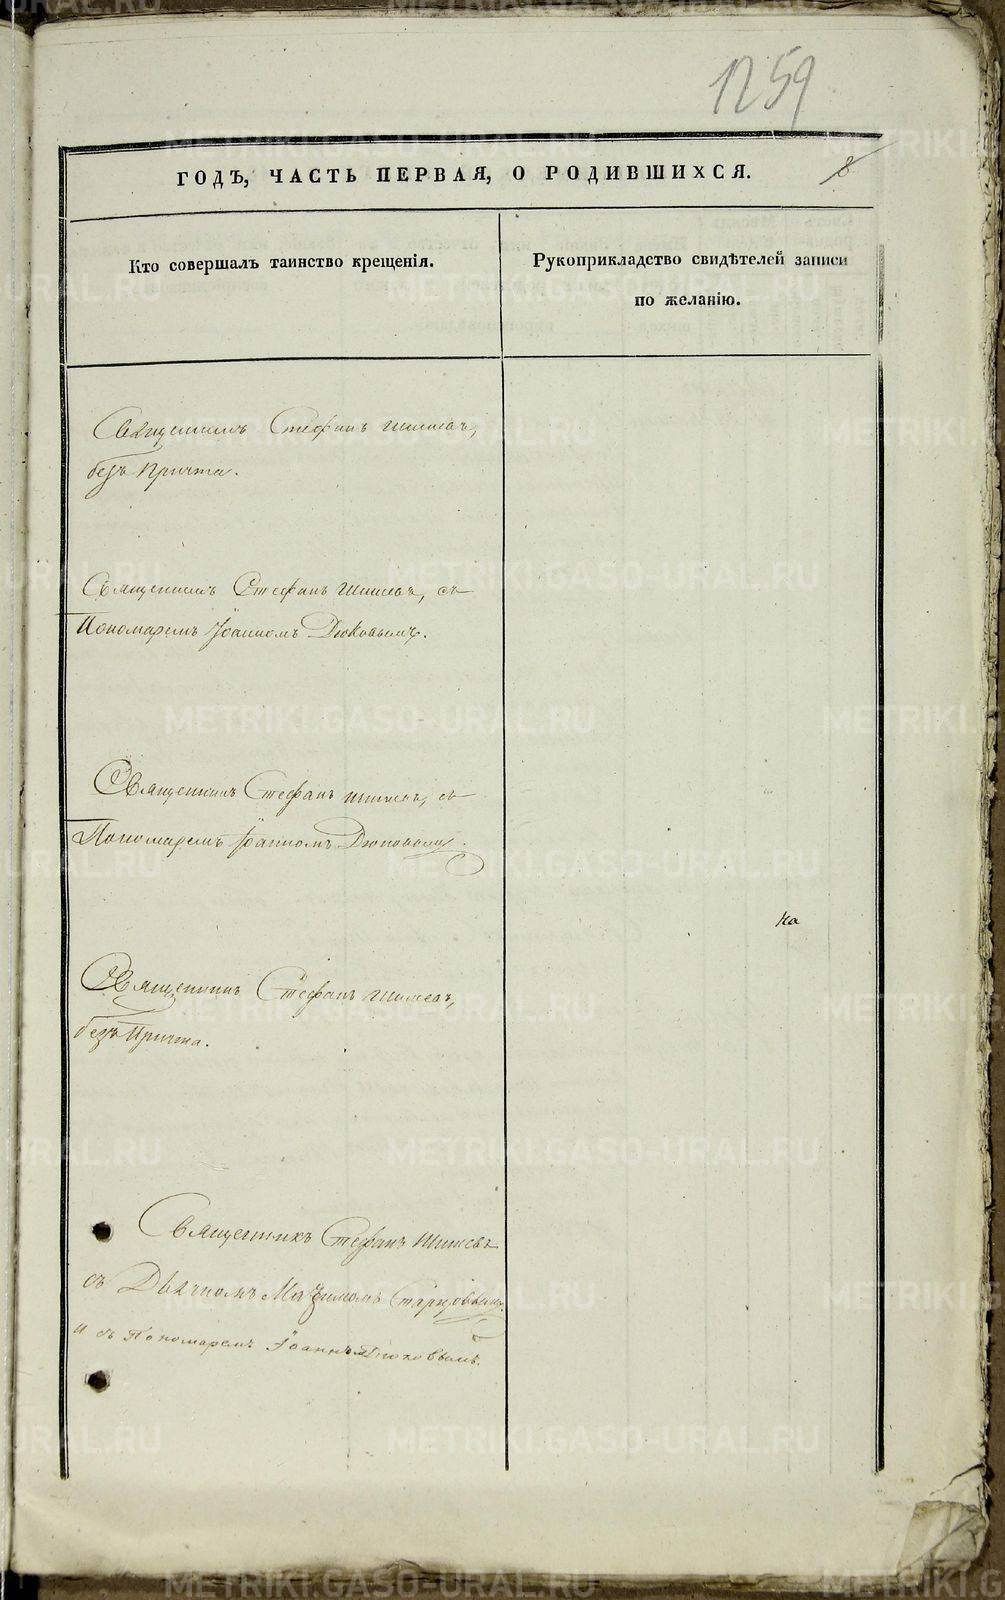 1259
ГОДЪ, ЧАСТЬ ПЕРВАЯ, О РОДИВШИХСЯ.
8
Кто совершалъ таинство крещенія.
Рукоприкладство свидѣтелей записи
по желанію.
Священникъ Стефанъ Шишевъ,
безъ Причта.
Священникъ Стефанъ Шишевъ, съ
Пономаремъ Іоанномъ Дюковымъ.
Священникъ Стефанъ Шишевъ, съ
Пономаремъ Іоанномъ Дюковымъ.
на
Священникъ Стефанъ Шишевъ,
безъ Причта.
Священникъ Стефанъ Шишевъ
съ Дьячкомъ Максимомъ Старцовымъ
и съ Пономаремъ Іоанномъ Дюковымъ.
METRIKI.GASO-URAL.RU